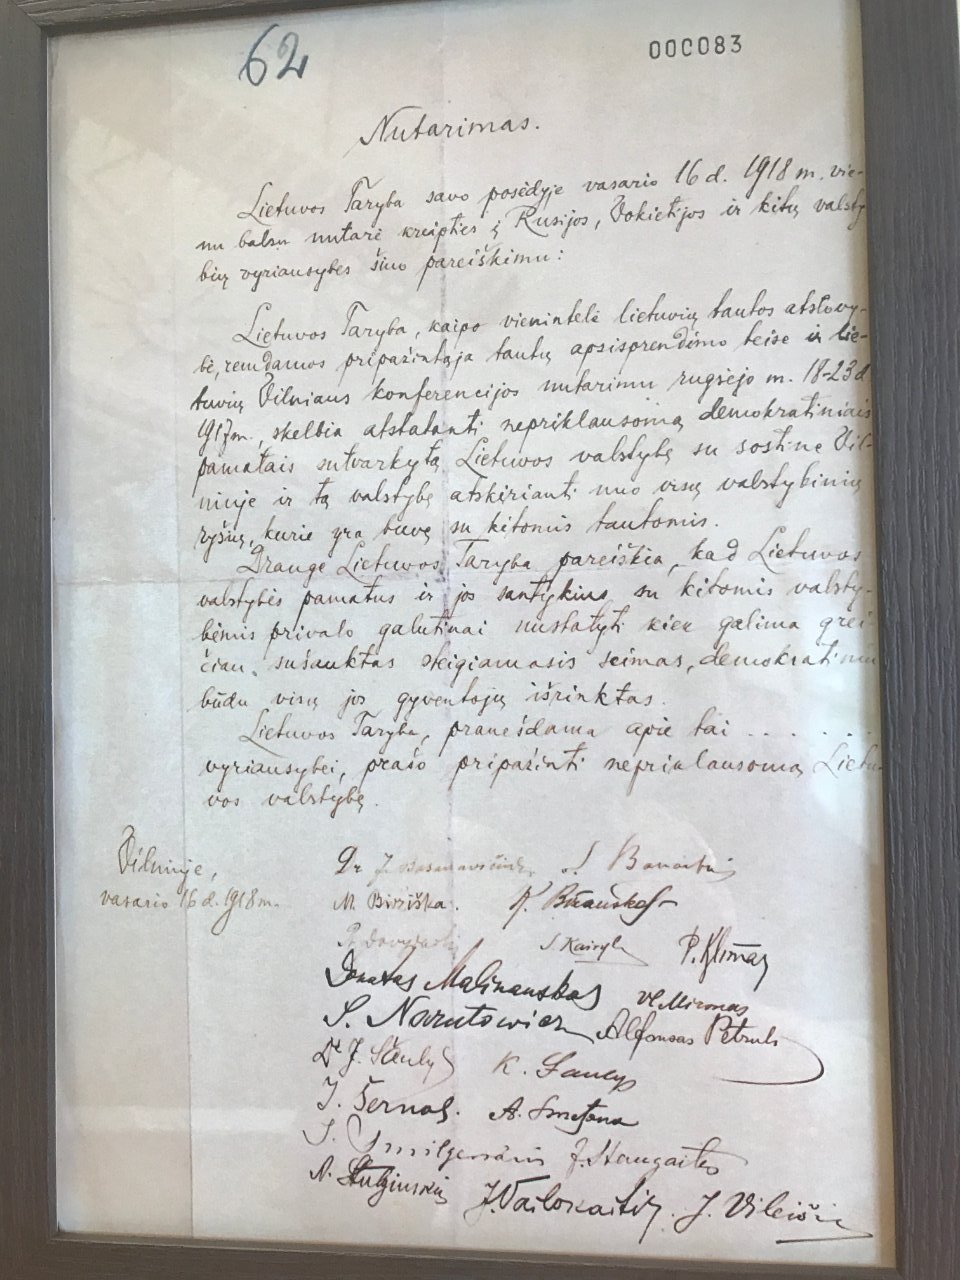 62
000083
Nutarimas.
Lietuvos Taryba savo posėdyje vasario 16 d. 1918 m. vie-
nu balsu nutarė kreipties į Rusijos, Vokietijos ir kitų valsty
bių vyriausybes šiuo pareiškimu:
Lietuvos Taryba, kaipo vienintelė lietuvių tautos atstovy-
bė, remdamos pripažintąja tautų apsisprendimo teise ir lie-
tuvių Vilniaus konferencijos nutarimu rugsėjo m. 18-23 d
1917 m., skelbia atstatanti nepriklausomą demokratiniais
pamatais sutvarkytą Lietuvos valstybę su sostine Vil-
niuje ir tą valstybę atskirianti nuo visų valstybinių
ryšių, kurie yra buvę su kitomis tautomis.
Drauge Lietuvos Taryba pareiškia, kad Lietuvos
valstybės pamatus ir jos santykius su kitomis valsty-
bėmis privalo galutinai nustatyti kiek galima grei-
čiau sušauktas steigiamasis seimas, demokratiniu
būdu visų jos gyventojų išrinktas.
Lietuvos Taryba, pranešdama apie tai . . . . . .
vyriausybei, prašo pripažinti nepriklausomą Lietu-
vos valstybę.
Vilniuje,
vasario 16 d. 1918 m.
Dr J. Basanavičius S. Banaitis
M. Biržiška. K. Bizauskas
P. Dovydaitis S. Kairys P. Klimas
Donatas Malinauskas Vl. Mironas
S. Narutowicz Alfonsas Petrulis
Dr J. Šaulys K. Šaulys
J. Šernas. A. Smetona
J. Smilgevičius J. Staugaitis
A. Stulginskis J. Vailokaitis J. Vileišis